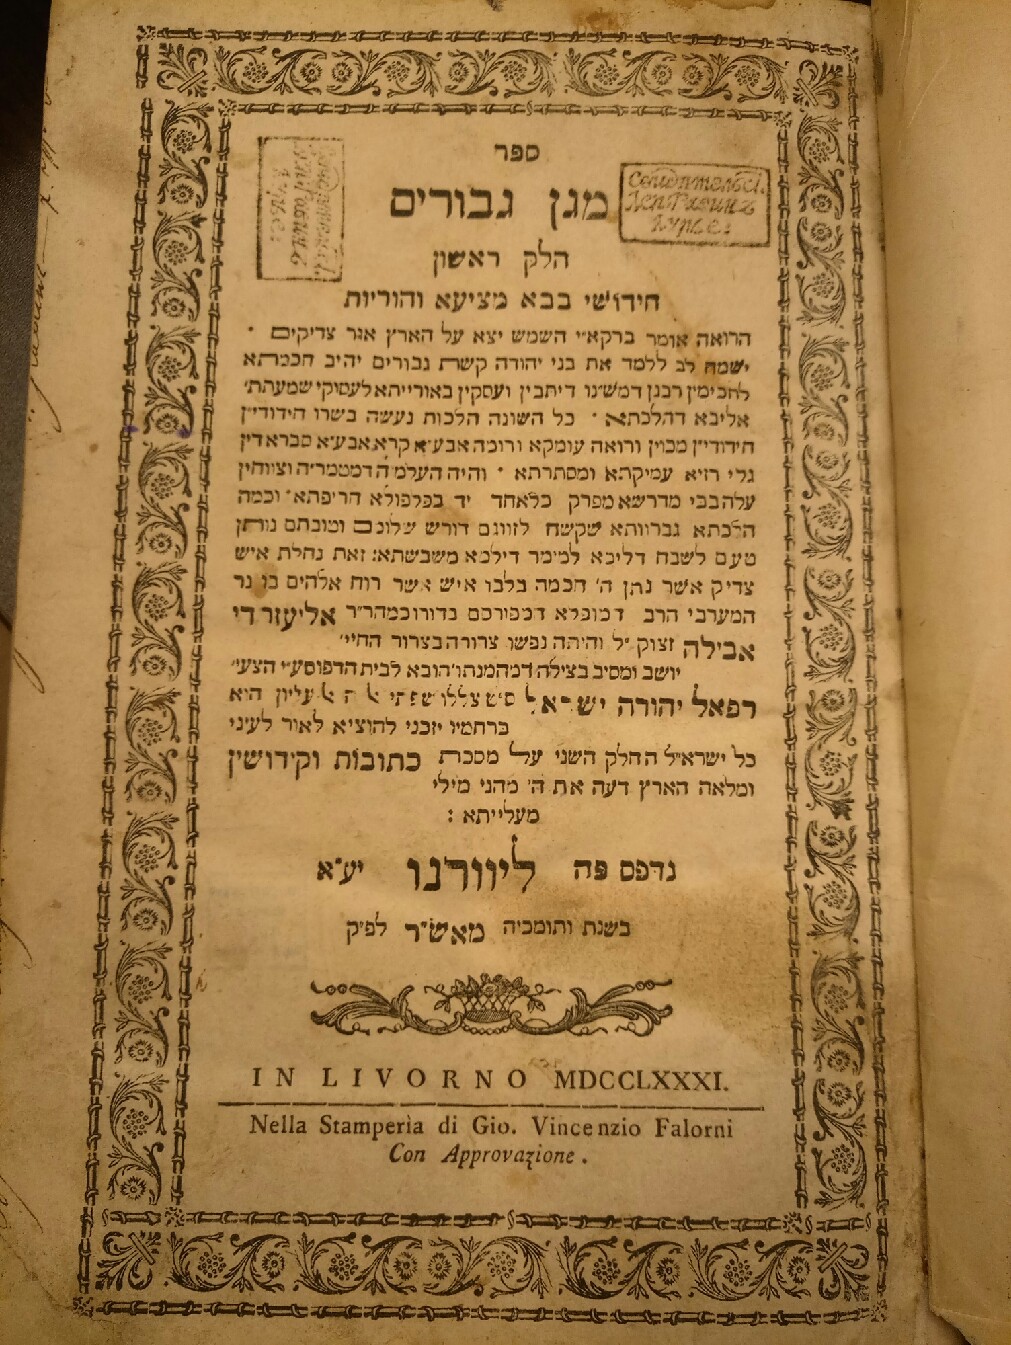 ספר
מגן גבורים
חלק ראשון
חידושי בבא מציעא והוריות
הרואה אומר ברקא״י השמש יצא על הארץ אגר צדיקים •
ישמח לב ללמד את בני יהודה קשת גבורים יהיב חכמתא
לחכימין רבנן דמש״נו דיתבין ועסקין באורייתא לעסוקי שמעתת׳
אליבא דהלכתא • כל השונה הלכות נעשה בשרו חידודי״ן
חידודי״ן מבוין ורואה עומקא ורומה אבע״א קרא אבע״א סברא דין
גלי רזיא עמיקתא ומסתרתא • והיה העלמ״ה דמטמריה וציוחין
עלה בבי מדרשא מפרק כלאחד יד בפלפולא חריפתא • וכמה
הלכתא גברוותא שקשה לזווגם דורש שלומם וטובתם נותן
טעם לשבח דליכא למימר דילמא משבשתא: זאת נחלת איש
צדיק אשר נתן ה׳ חכמה בלבו איש אשר רוח אלהים בו נר
המערבי הרב המופלא המפורסם בדורו כמהר״ר אליעזר די
אבילה זצוק״ל והיתה נפשו צרורה בצרור החיי׳
יושב ומסיב בצילה דמהמנתו הובא לבית הדפוס ע״י הצעי׳
רפאל יהודה ישראל עליון הוא
ברחמיו יזכני להוציא לאור לעיני
כל ישראל החלק השני על מסכת כתובות וקידושין
ומלאה הארץ דעה את ה׳ מהני מילי
מעלייתא :
נדפס פה ליוורנו יע״א
בשנת ותומכיה מאש״ר לפ״ק
IN LIVORNO MDCCLXXXI.
Nella Stamperìa di Gio. Vincenzio Falorni
Con Approvazione.